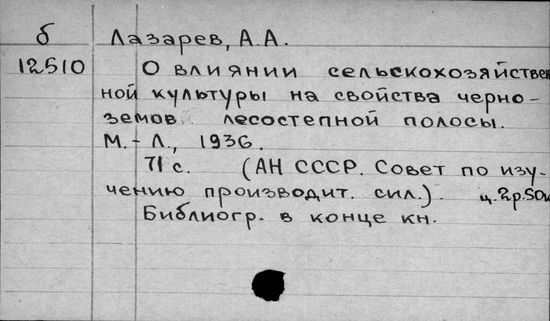 б Лазарев, А.А.
12510 О влиянии сельскохозяйствен
ной культуры на свойства черно-
земов лесостепной полосы.
М.-Л., 1936.
71 с. (АН СССР. Совет по изу-
чению производит. сил.). ц. 2р. 50к
Библиогр. в конце кн.